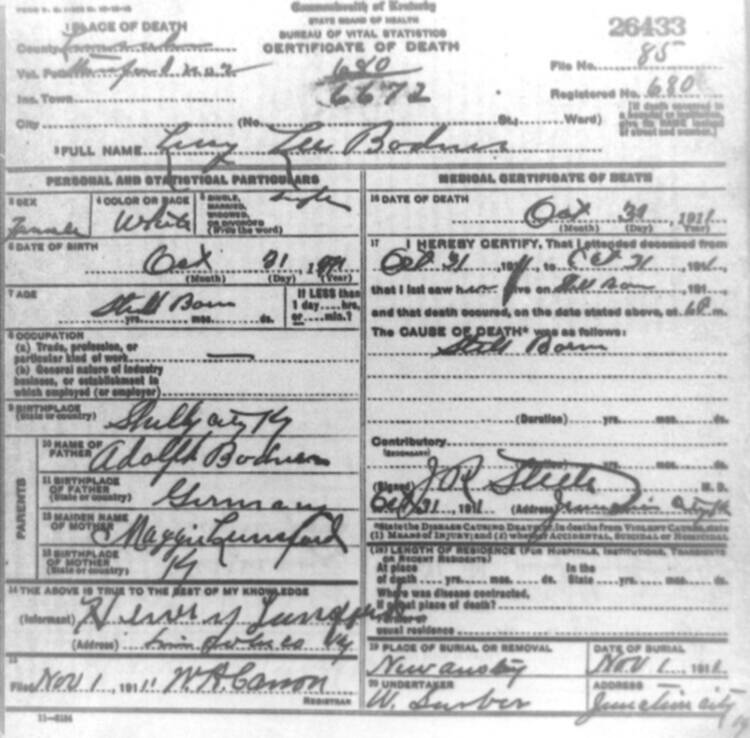 Commonwealth of Kentucky
STATE BOARD OF HEALTH
BUREAU OF VITAL STATISTICS
CERTIFICATE OF DEATH
1 PLACE OF DEATH
County
Vot. Pct.
Ins. Town
City (No. St.; Ward)
680
6672
26433
File No. 85
Registered No. 680
[If death occurred in a hospital or institution, give its NAME instead of street and number.]
2 FULL NAME Lucy Lee Bodner
PERSONAL AND STATISTICAL PARTICULARS
3 SEX Female
4 COLOR OR RACE White
5 SINGLE, MARRIED, WIDOWED, OR DIVORCED (Write the word) Single
6 DATE OF BIRTH
Oct 31, 1911
(Month) (Day) (Year)
7 AGE Still Born
yrs. mos. ds.
If LESS than 1 day hrs. or min.?
8 OCCUPATION
(a) Trade, profession, or particular kind of work —
(b) General nature of industry business, or establishment in which employed (or employer)
9 BIRTHPLACE (State or country) Shelby city Ky
PARENTS
10 NAME OF FATHER Adolph Bodner
11 BIRTHPLACE OF FATHER (State or country) Germany
12 MAIDEN NAME OF MOTHER Maggie Lunsford
13 BIRTHPLACE OF MOTHER (State or country) Ky
14 THE ABOVE IS TRUE TO THE BEST OF MY KNOWLEDGE
(Informant) Henry
(Address) Ky
15
Filed Nov 1, 1911 W.A. Carson
REGISTRAR
11-6184
MEDICAL CERTIFICATE OF DEATH
16 DATE OF DEATH
Oct 31, 1911
(Month) (Day) (Year)
17 I HEREBY CERTIFY, That I attended deceased from
Oct 31, 1911, to Oct 31, 1911,
that I last saw h alive on Still Born, 191
and that death occured, on the date stated above, at 6 P m.
The CAUSE OF DEATH* was as follows:
Still Born
(Duration) yrs. mos. ds.
Contributory
(SECONDARY)
(Duration) yrs. mos. ds.
(Signed) J R Steele M. D.
Oct 31, 1911 (Address) Junction City Ky
*State the DISEASE CAUSING DEATH, or, in deaths from VIOLENT CAUSES, state
(1) MEANS OF INJURY; and (2) whether ACCIDENTAL, SUICIDAL or HOMICIDAL
18 LENGTH OF RESIDENCE (FOR HOSPITALS, INSTITUTIONS, TRANSIENTS OR RECENT RESIDENTS)
At place of death yrs. mos. ds. In the State yrs. mos. ds.
Where was disease contracted,
if not at place of death?
Former or
usual residence
19 PLACE OF BURIAL OR REMOVAL
DATE OF BURIAL
Nov 1, 1911
20 UNDERTAKER
W. Surber
ADDRESS
Junction city Ky